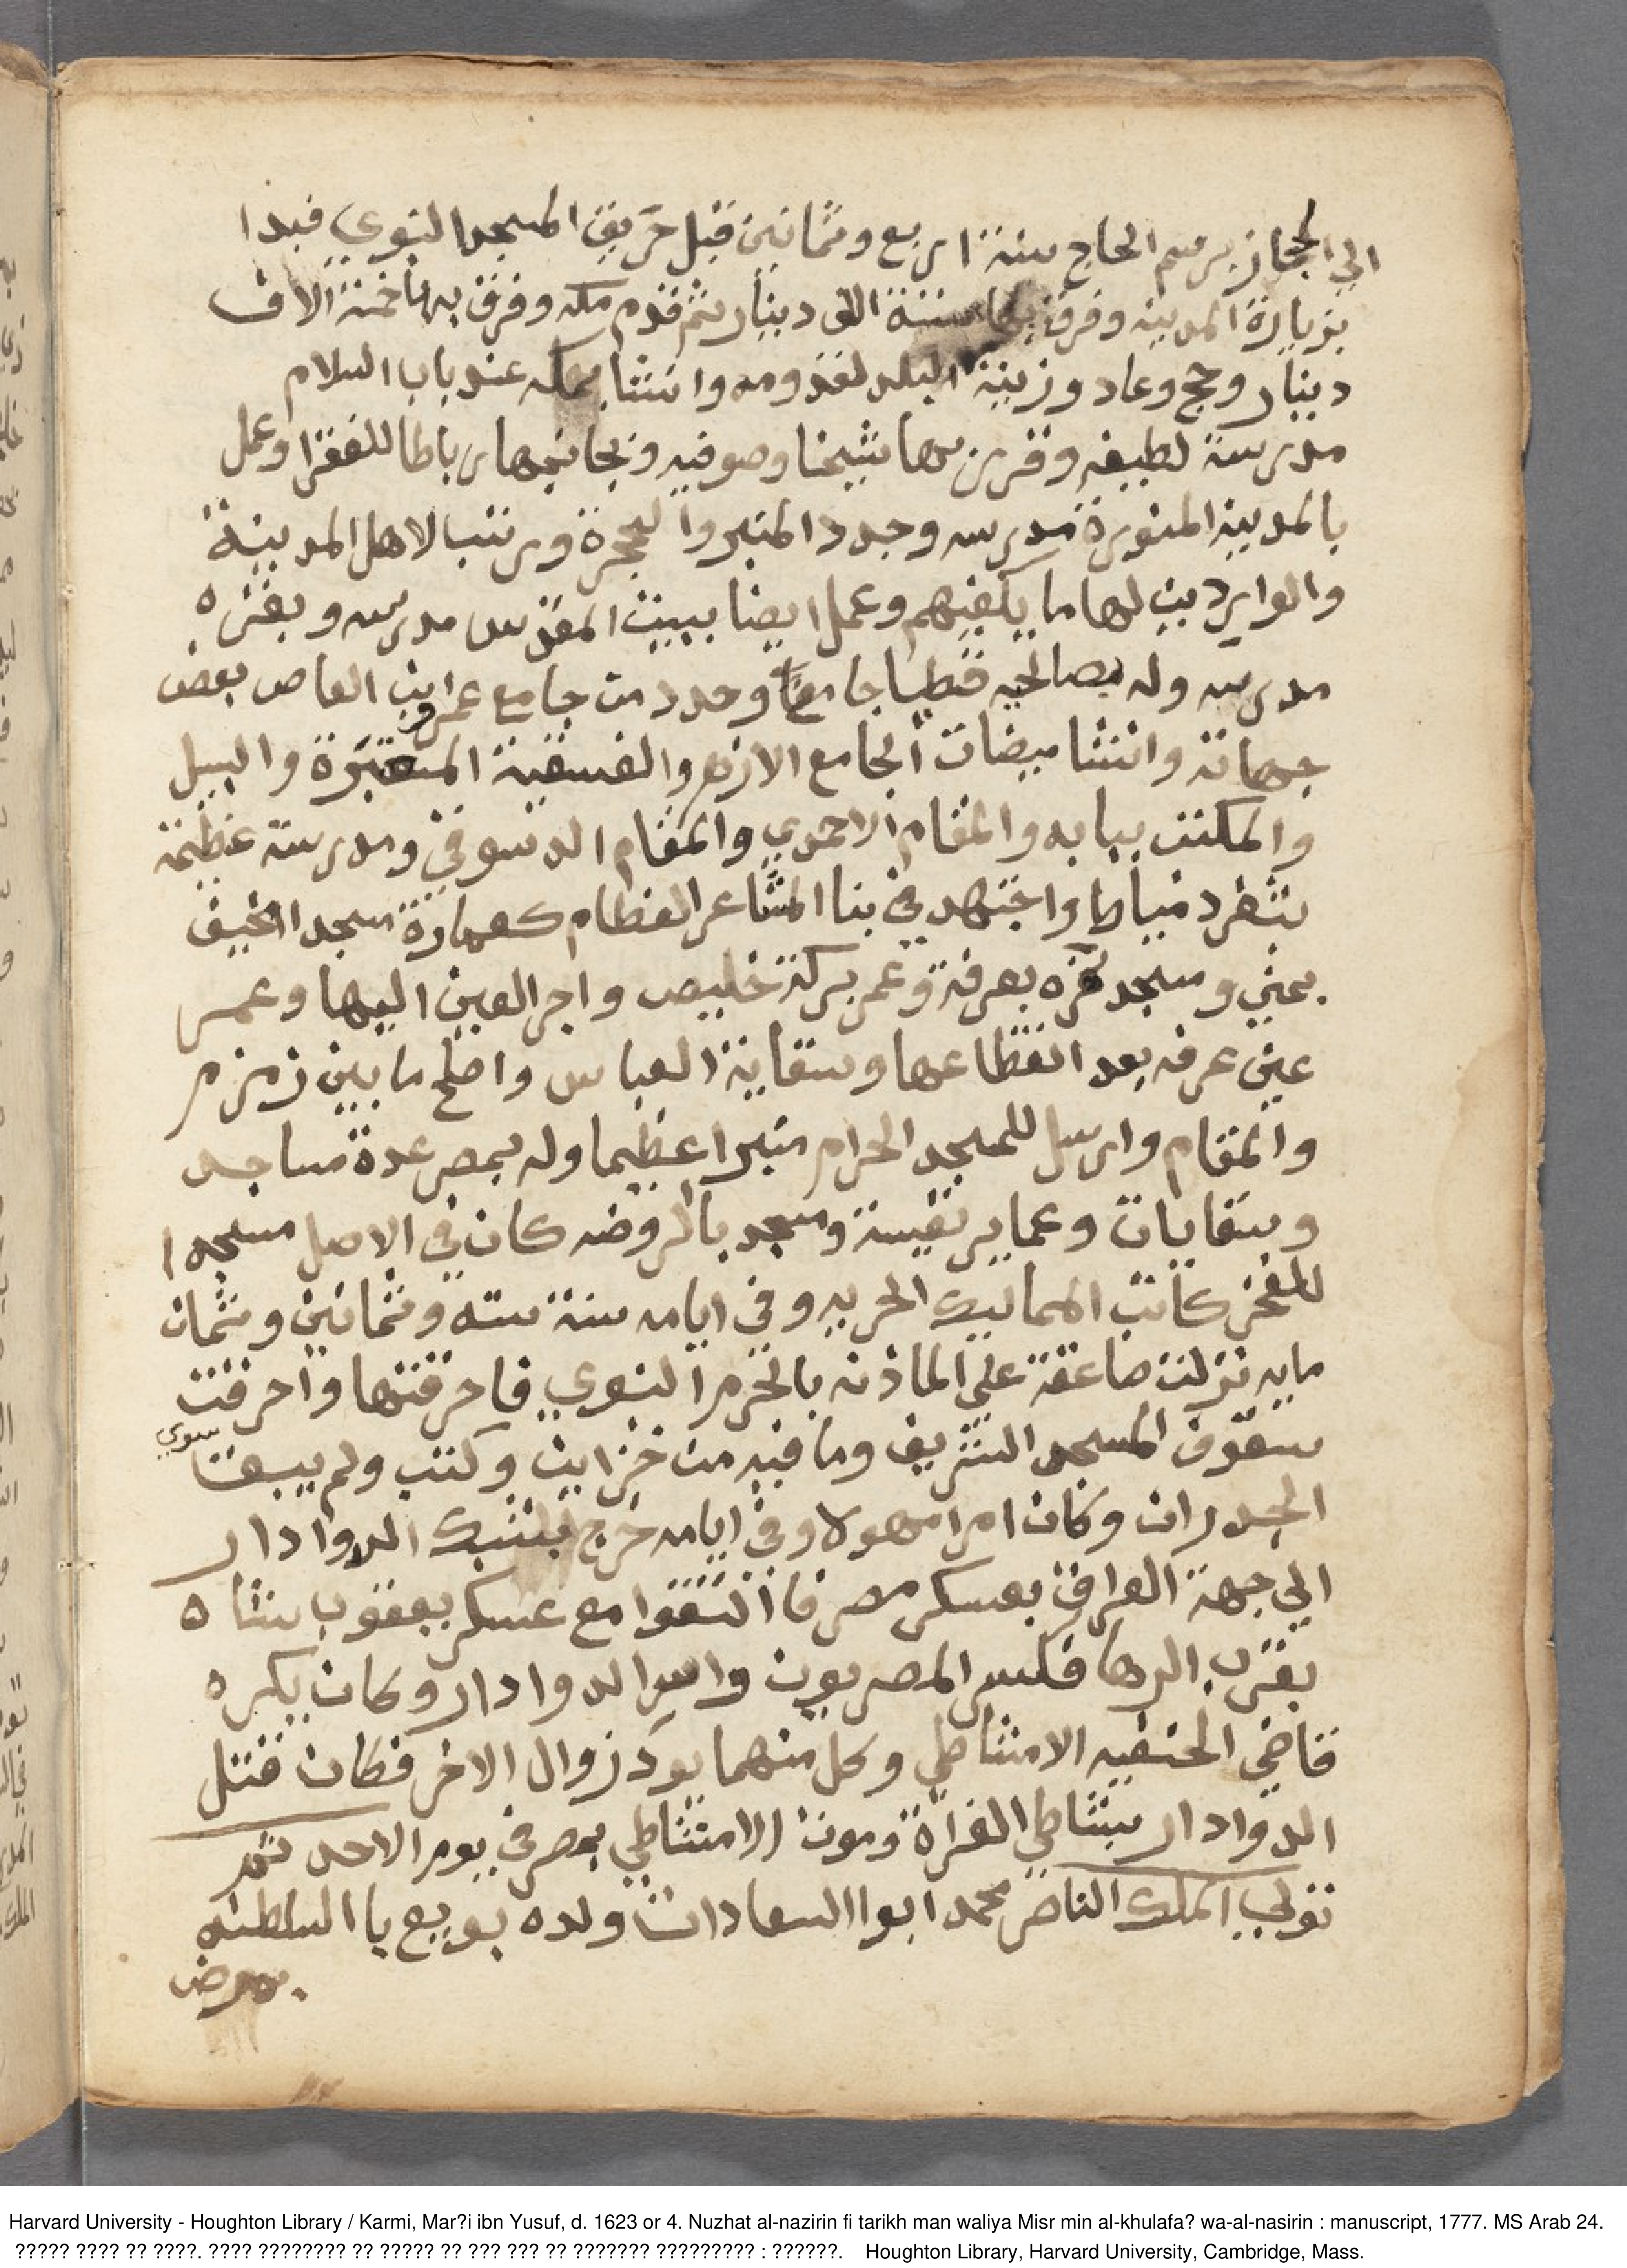 الي الحجاز برسم الحاج سنة اربع وثمانين قبل حريق المسجد النبوي فبدا
بزيارة المدينه وفرق بها ستة الف دينار ثم قدم مكه وفرق بها خمسة الاف
دينار وحج وعاد وزينة البلد لقدومه وانشا بمكه عند باب السلام
مدرسة لطيفه وقرر بها شيخا وصوفيه وبجانبها رباطا للفقرا وعمل
بالمدينه المنوره مدرسه وجدد المنبر والحجرة ورتب لاهل المدينة
والواردين لها ما يكفيهم وعمل ايضا ببيت المقدس مدرسه وبغزه
مدرسه وله بصالحيه قطيا جامعا وجدد من جامع عمرو ابن العاص بعض
جهاته وانشا ميضات الجامع الازهر والفسقية المعتبرة والسبيل
والمكتب ببابه والمقام الاحمدي والمقام الدسوقي ومدرسة عظيمة
بثغر دمياط واجتهد في بنا المشاعر العظام كعمارة مسجد الخيف
بمني ومسجد نمره بعرفة وعمر بركة خليص واجر العين اليها وعمر
عين عرفه بعد انقطاعها وسقاية العباس واصلح ما بين زمزم
والمقام وارسل للمسجد الحرام منبرا عظيما وله بمصر عدة مساجد
وسقايات وعماير نفيسة ومسجد بالروضه كان في الاصل مسجدا
للفخر كاتب المماليك البحريه وفي ايامه سنة سته وثمانين وثمان
مايه نزلت صاعقة علي الماذنه بالحرم النبوي فاحرقتها واحرقت
سقوف المسجد الشريف وما فيه من خزاين وكتب ولم يبق سوي
الجدران وكان امرا مهولا وفي ايامه خرج يشبك الدوادار
الي جهة العراق بعسكر مصر فا التقوا مع عسكر يعقوب شاه
بقرب الرها فكسر المصريون واسر الدوادار وكان يكره
قاضي الحنفيه الامشاطي وكل منهما يود زوال الاخر فكان قتل
الدوادار بشاطي الفراة وموت الامشاطي بمصر في يوم الاحد ثم
تولي الملك الناصر محمد ابوا السعادات ولده بويع با السلطنه